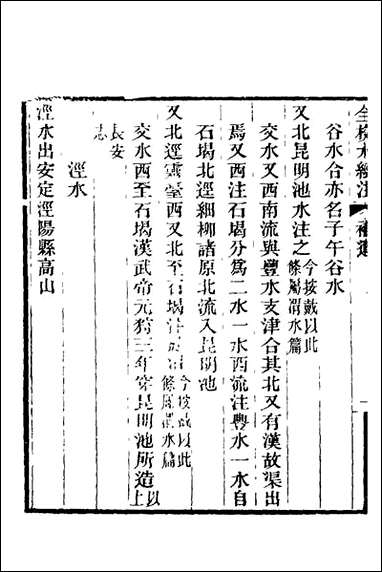 全校水經注 補遺
谷水合亦名子午谷水
又北昆明池水注之今按戴以此條屬渭水篇
交水又西南流與豐水支津合其北又有漢故渠出
焉又西注石堨分爲二水一水西流注豐水一水自
石堨北逕細柳諸原北流入昆明池
又北逕靈臺西又北至石堨注于渭今按戴以此條屬渭水篇
交水西至石堨漢武帝元狩三年穿昆明池所造以上
長安志
涇水
涇水出安定涇陽縣高山